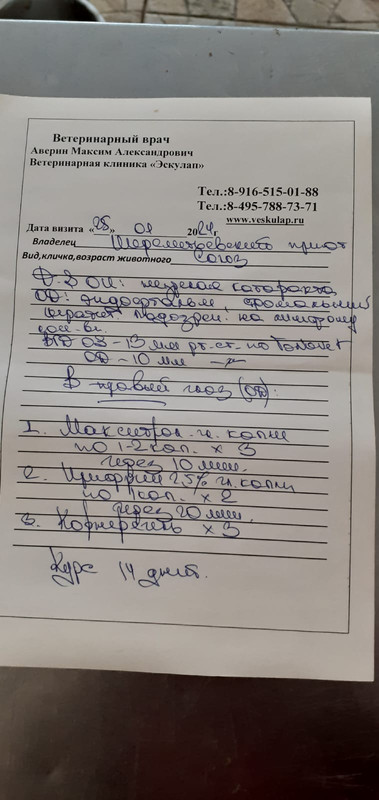 Ветеринарный врач
Аверин Максим Александрович
Ветеринарная клиника «Эскулап»
Тел.:8-916-515-01-88
Тел.:8-495-788-73-71
www.veskulap.ru
Дата визита «25» 01 2024г
Владелец Шереметьевский приют
Вид,кличка,возраст животного Союз
D.S OU: незрелая катаракта
OD:
подозрен. на
OS - 13 мм рт.ст. по Tonovet
OD - 10 мм
В правый глаз (OD):
1. Макситрол гл. капли
по 1-2 кап. х 3
через 10 мин.
2. Ирифрин 2.5% гл. капли
по 1 кап. х 2
через 20 мин.
3. Корнерегель х 3
Курс 14 дней.